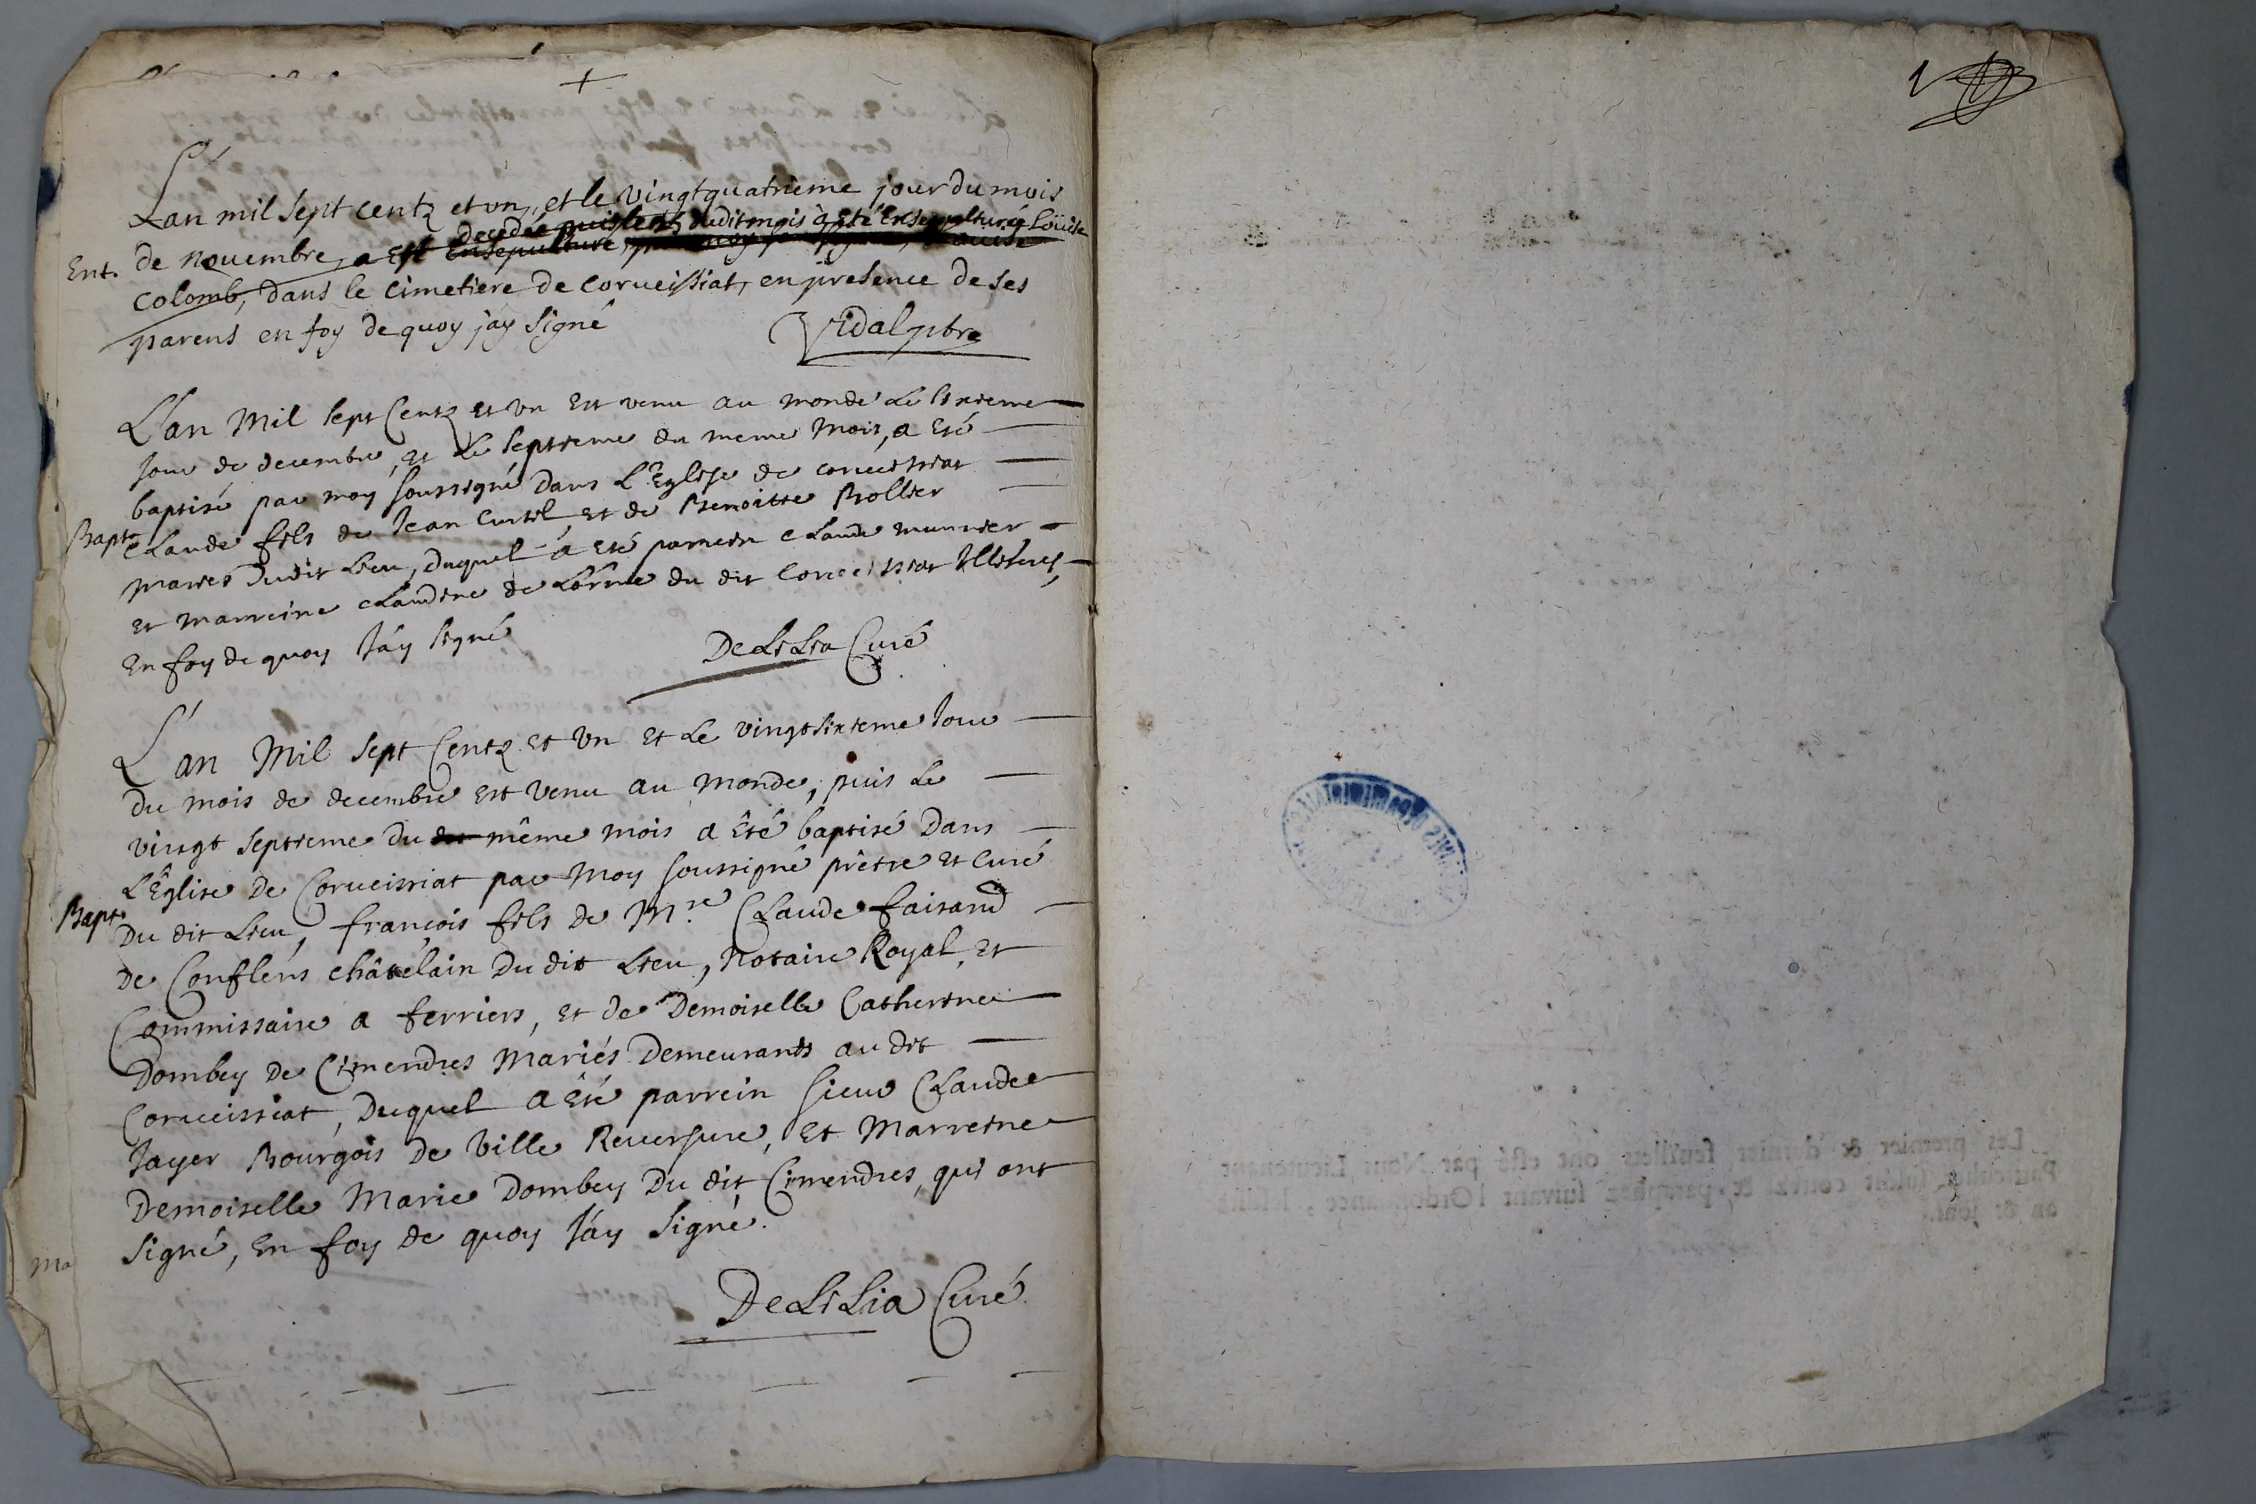 +
L'an mil sept centz et un, et le vingtquatrieme jour du mois
decedée puis le 25 dudit mois à esté Ensepulturée Loüise
Ent. de novembre, a esté Ensepulturé
Colomb, dans le cimetiere de Corveissiat, en presence de ses
parens en foy de quoy jay signé
Vidal pbre
L'an Mil sept Centz et Un Est venu au monde Le sixieme
Jour de decembre, et Le septieme du meme Mois, a Eté
baptisé par moy soussigné Dans L'Eglise de corveissiat
Bapt. CLaude fils de Jean Curtil, et de Benoitte Bollier
Mariés dudit Lieu, duquel a Eté parrein cLaude munnier
et marreine cLaudine de Lorme du dit Corveissiat Illiterés,
En foy de quoy Jáy signé
DeLiLia Curé
L'án Mil sept Centz et Un et Le vingtsixieme Jour
Du mois de decembre Est venu au monde, puis Le
vingt septieme Du dit même mois a Êté baptisé Dans
L'Église de Corveissiat par Moy soussigné prêtre et Curé
Bapt. Du dit Lieu, françois fils de M.re CLaude faisand
De Conflens châtelain Du dit Lieu, Notaire Royal, et
Commissaire a terriers, et de Demoiselle Catherine
Dombey De Cimendres Mariés Demeurants au dit
Corveissiat, Duquel a Êté parrein sieur CLaude
Jayer Bourgois De Ville Reversure, et Marreine
Demoiselle Marie Dombey Du dit Cimendres, qui ont
signé, En foy de quoy Jáy signé.
Ma
DeLiLia Curé
1
Les premier & dernier feüillets ont esté par Nous Lieutenant
Particulier, susdit cottez & paraphez suivant l'Ordonnance, lesdits
an & jour.